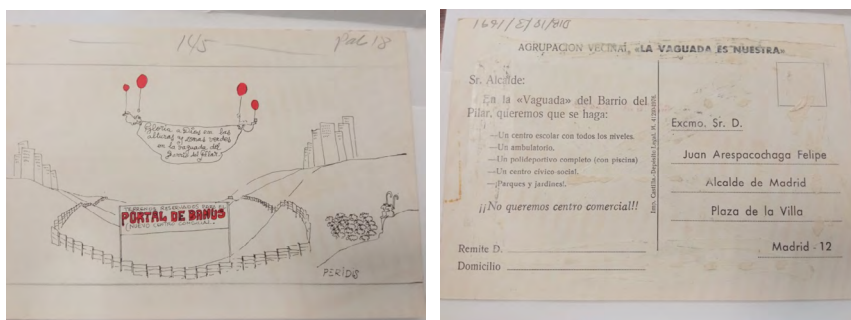 145
Pab 18
Gloria a Dios en las
alturas y zonas verdes
en la Vaguada del
Barrio del Pilar.
TERRENOS RESERVADOS PARA EL
PORTAL DE BANUS
(NUEVO CENTRO COMERCIAL)
PERIDIS
AGRUPACION VECINAL «LA VAGUADA ES NUESTRA»
Sr. Alcalde:
En la «Vaguada» del Barrio del
Pilar, queremos que se haga:
—Un centro escolar con todos los niveles.
—Un ambulatorio.
—Un polideportivo completo (con piscina)
—Un centro cívico-social.
—¡Parques y jardines!.
¡¡No queremos centro comercial!!
Remite D.
Domicilio
Imp. Castilla.-Depósito Legal, M.
Excmo. Sr. D.
Juan Arespacochaga Felipe
Alcalde de Madrid
Plaza de la Villa
Madrid - 12